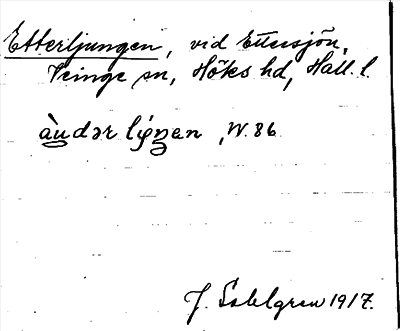 Etterljungen, vid Ettersjön,
Veinge sn, Höks hd, Hall. l.
W. 86
J. Sahlgren 1917.